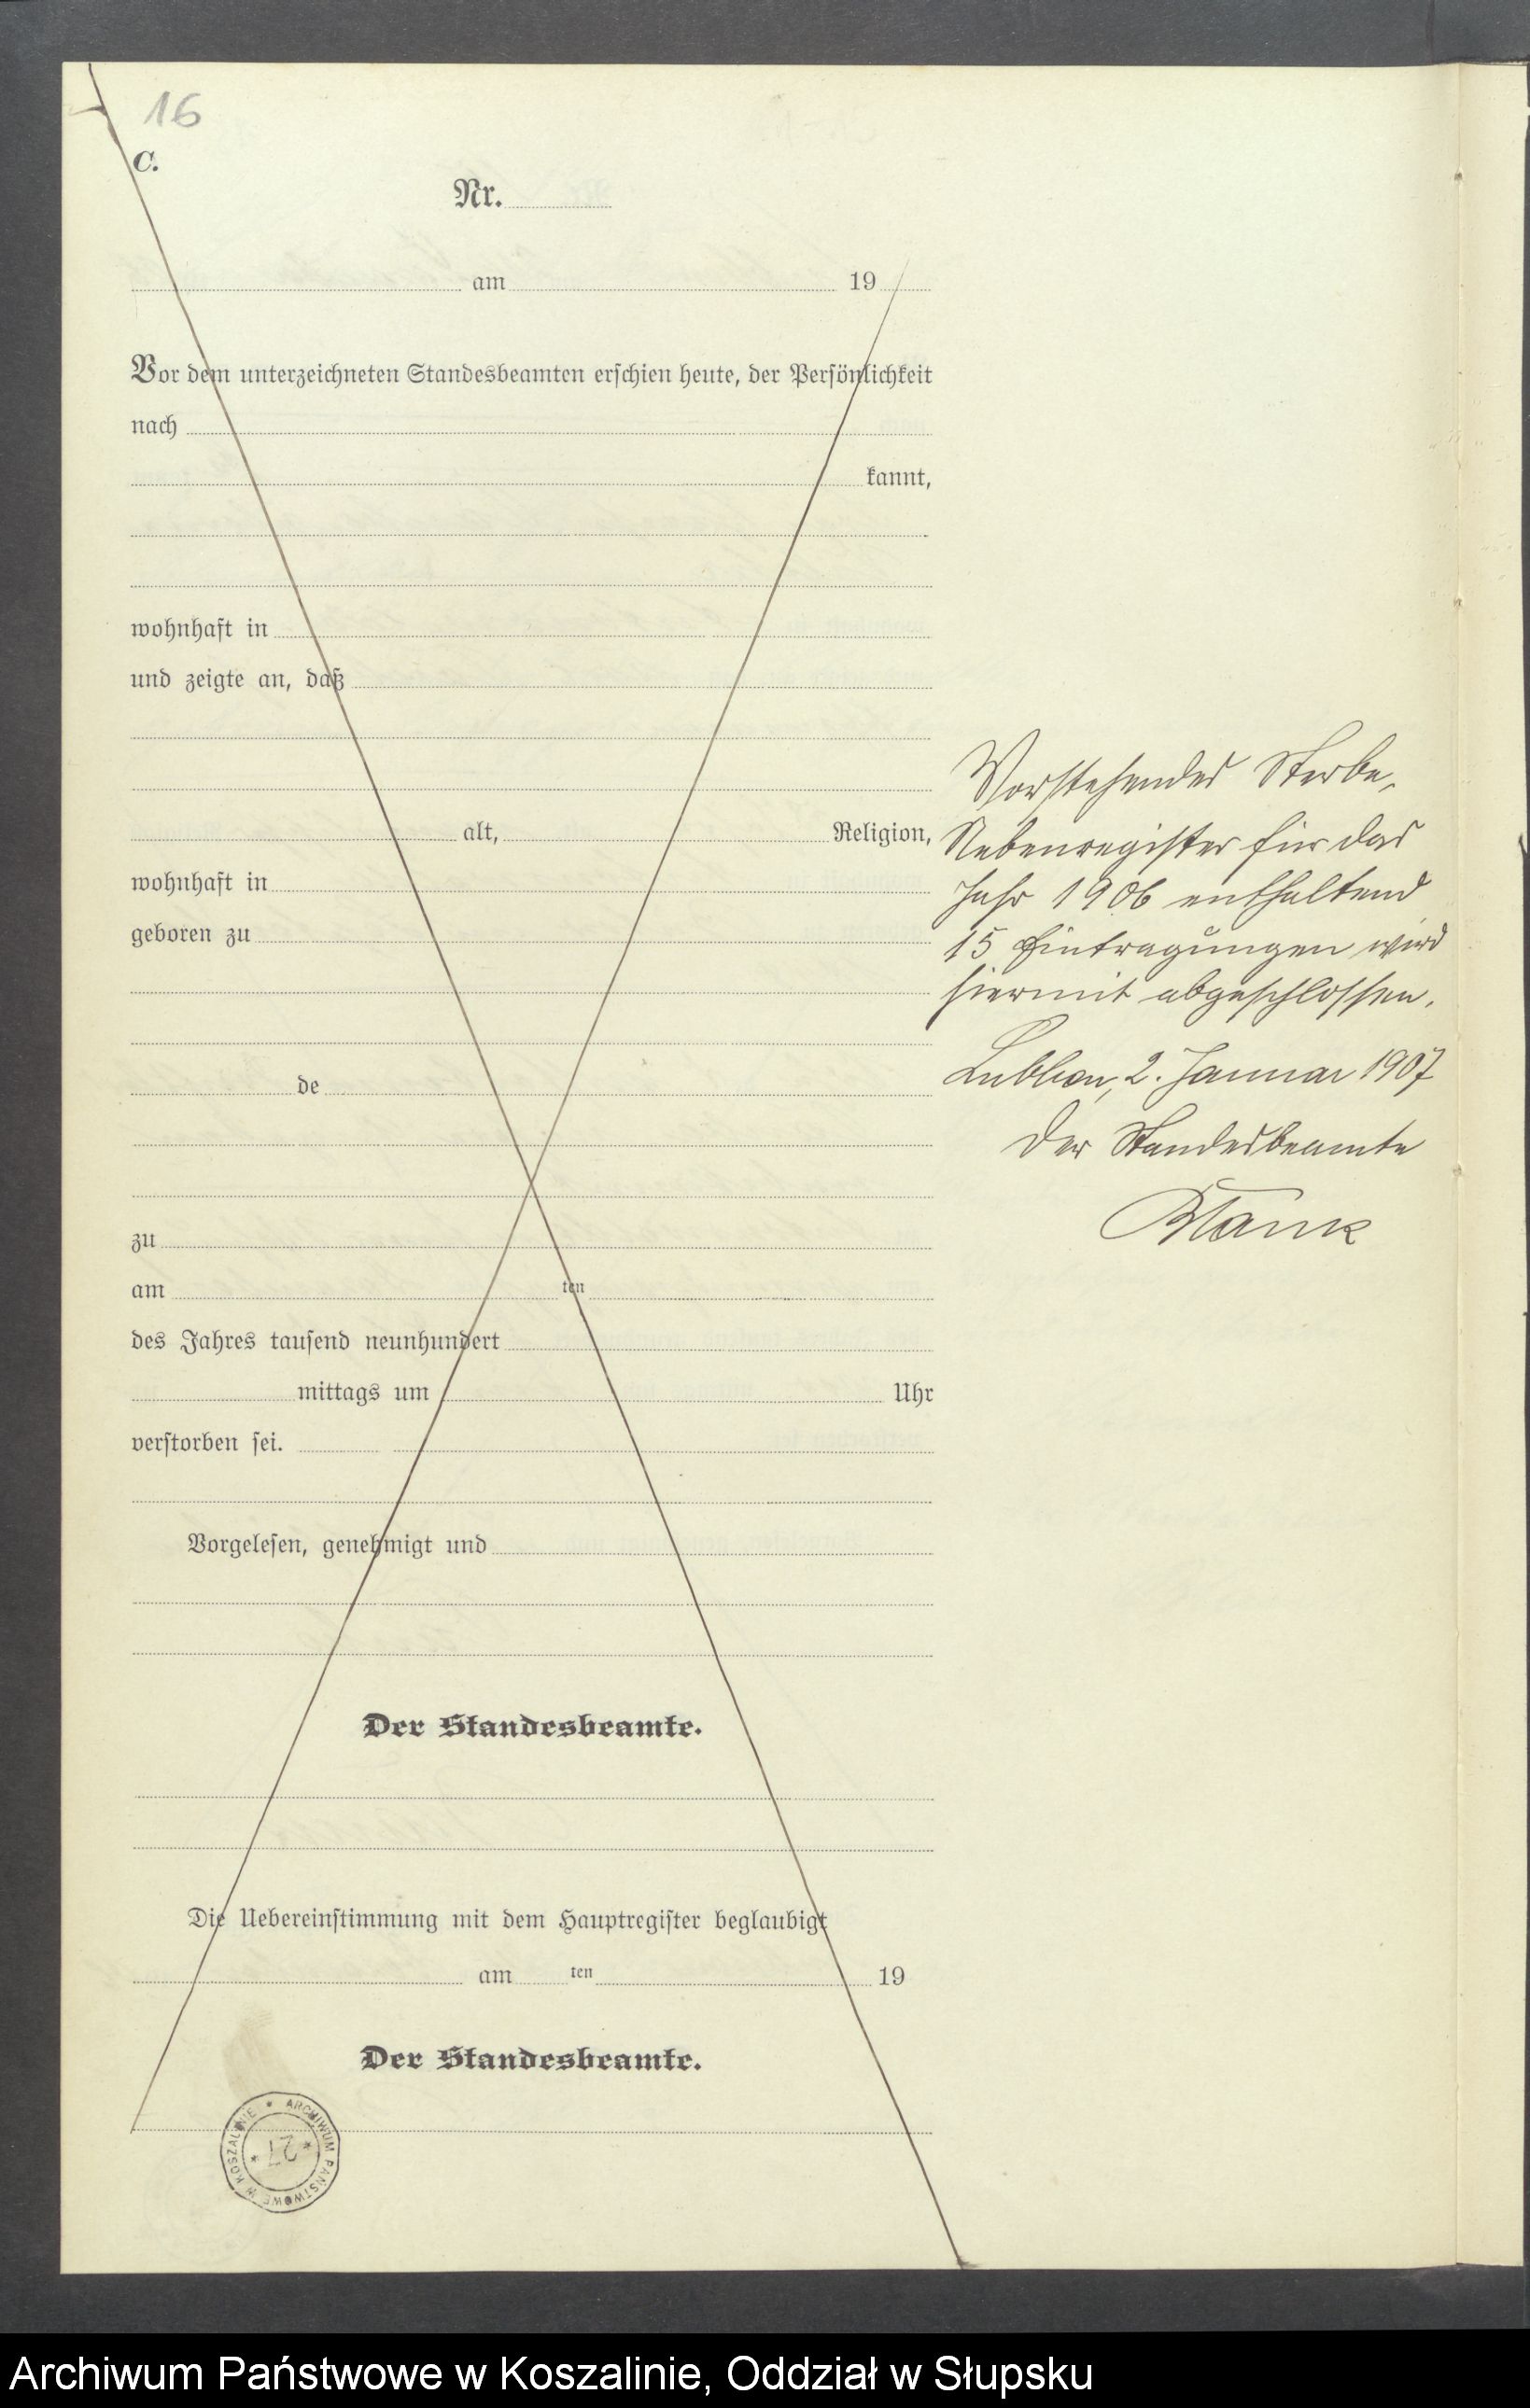 16
C.
Nr.
am 19
Vor dem unterzeichneten Standesbeamten erschien heute, der Persönlichkeit
nach
kannt,
wohnhaft in
und zeigte an, daß
alt, Religion,
wohnhaft in
geboren zu
de
zu
am ten
des Jahres tausend neunhundert
mittags um Uhr
verstorben sei.
Vorgelesen, genehmigt und
Der Standesbeamte.
Die Uebereinstimmung mit dem Hauptregister beglaubigt
am ten 19
Der Standesbeamte.
Vorstehendes Sterbe-
Nebenregister für das
Jahr 1906 enthaltend
15 Eintragungen wird
hiermit abgeschlossen.
Lubben, 2. Januar 1907
Der Standesbeamte
ARCHIWUM PAŃSTWOWE W KOSZALINIE
27
Archiwum Państwowe w Koszalinie, Oddział w Słupsku